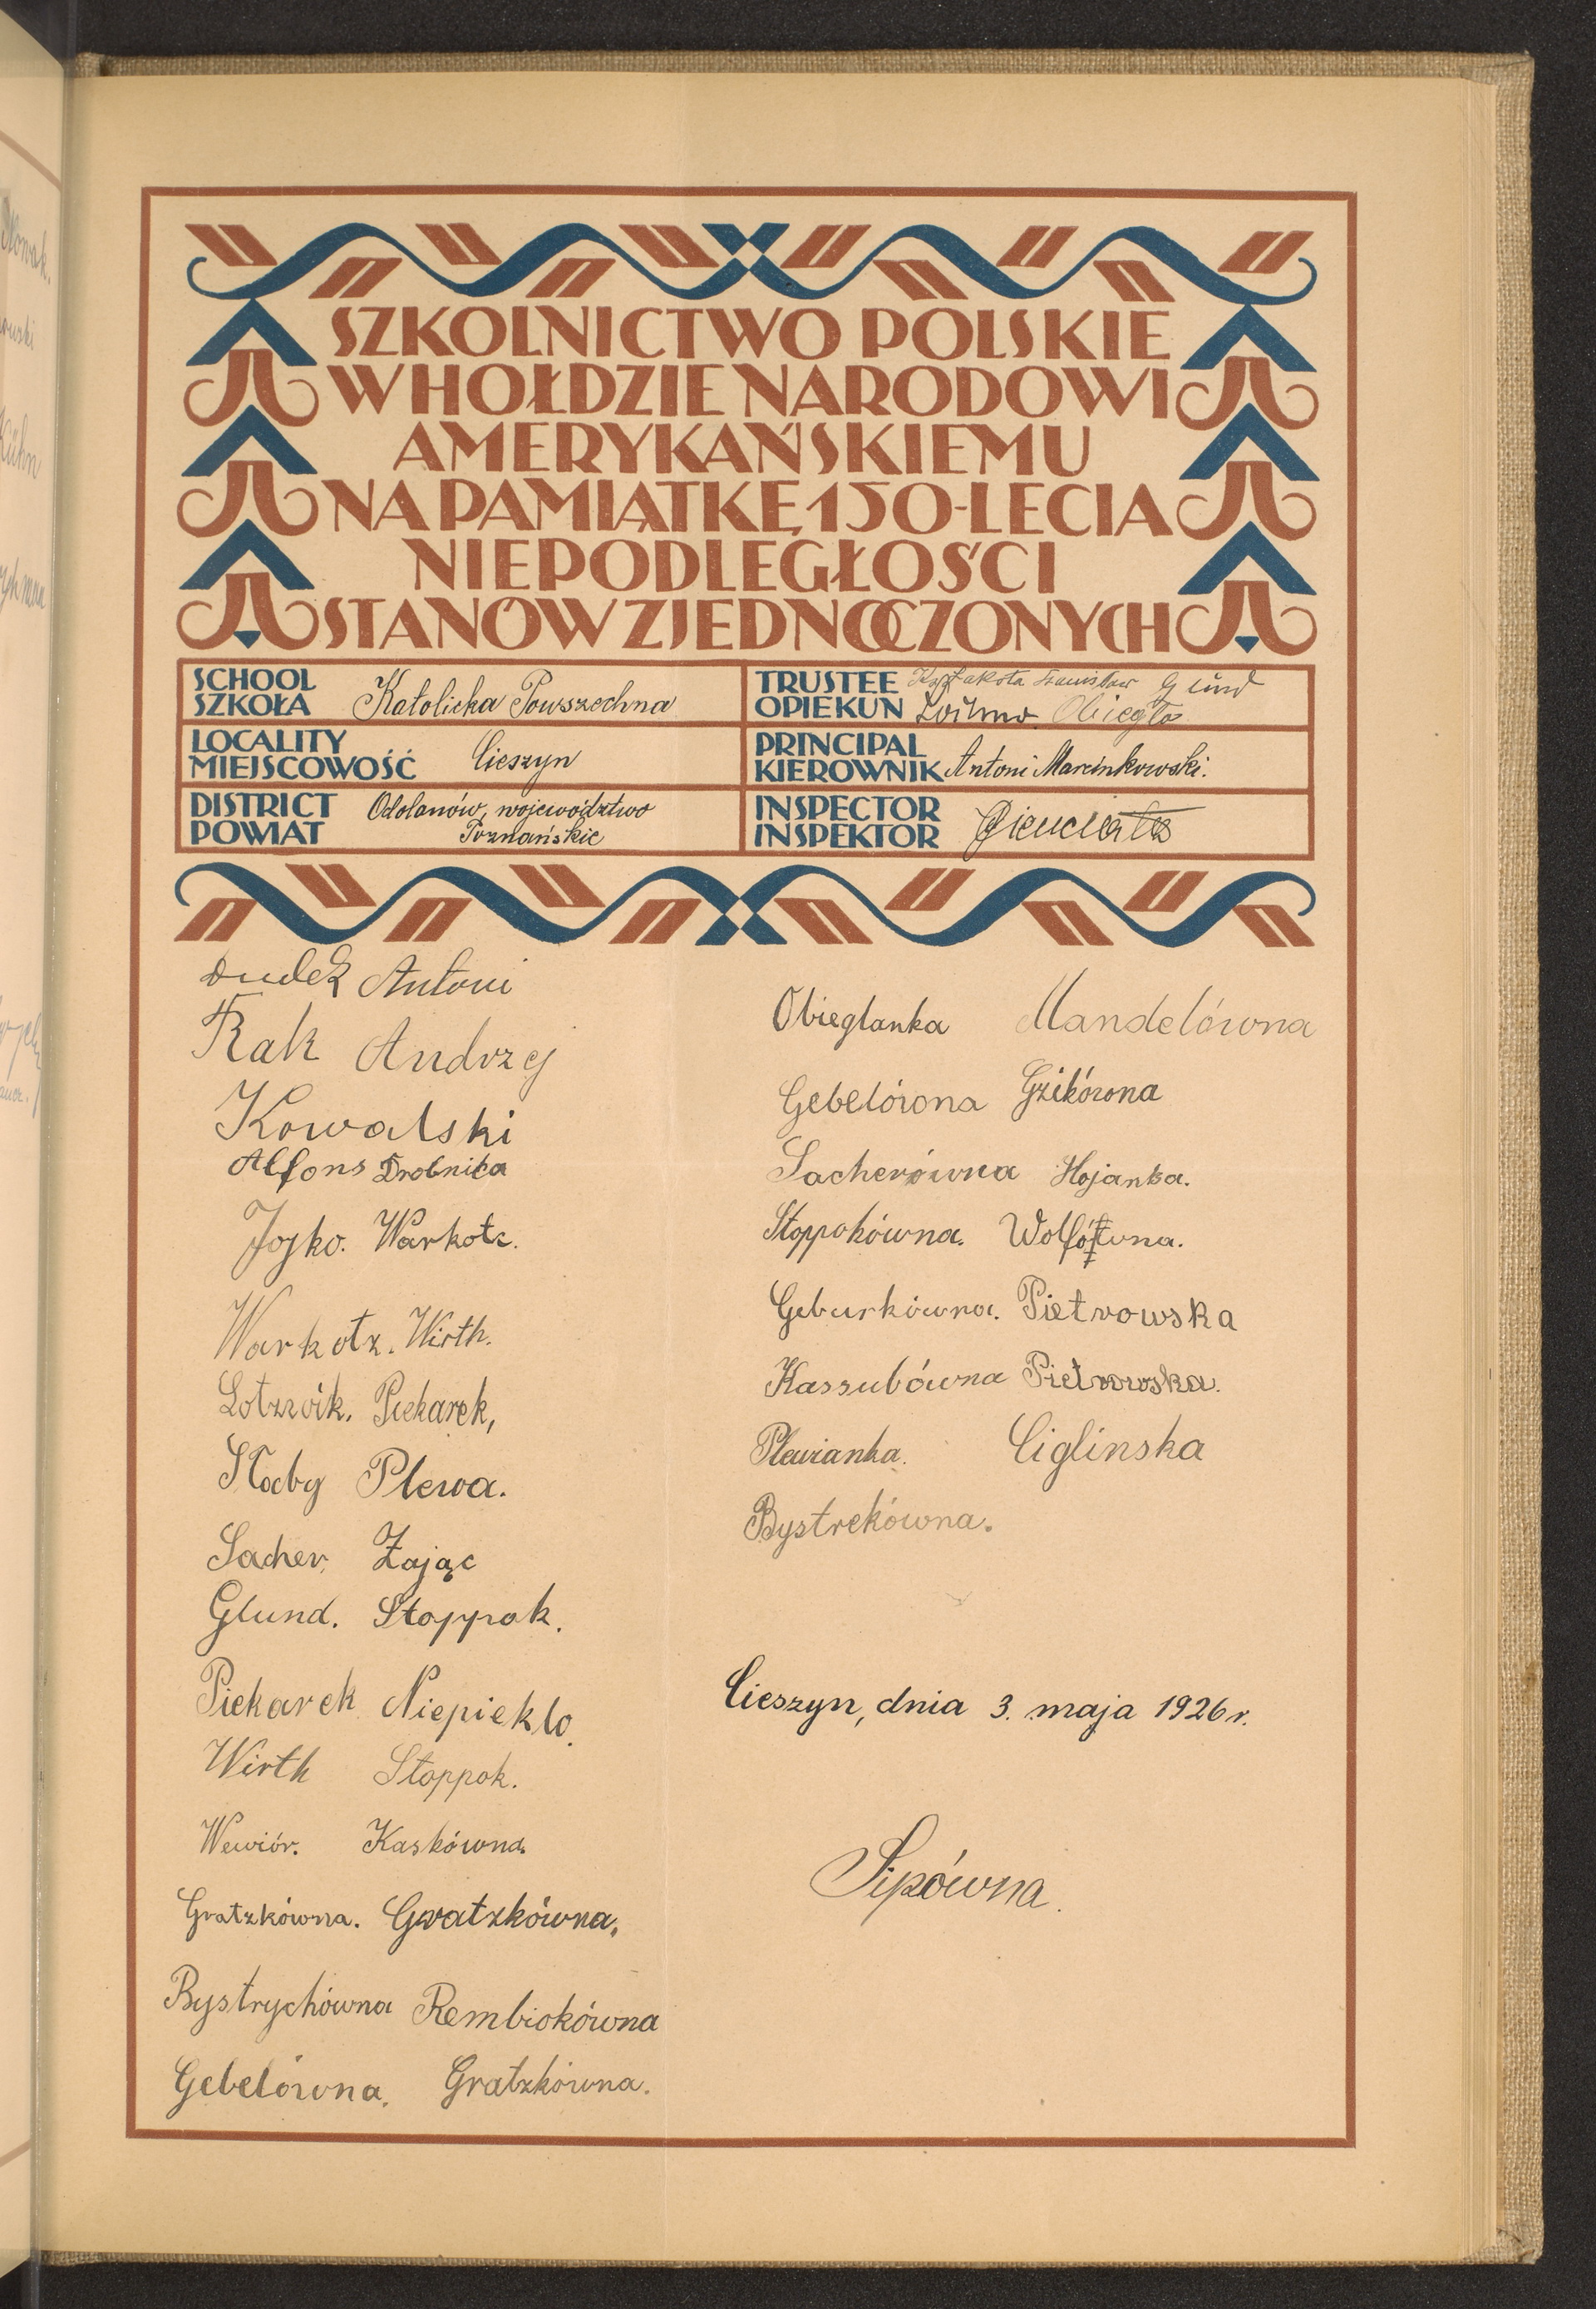 SZKOLNICTWO POLSKIE
W HOŁDZIE NARODOWI
AMERYKAŃSKIEMU
NA PAMIĄTKĘ 150-LECIA
NIEPODLEGŁOŚCI
STANÓW ZJEDNOCZONYCH
SCHOOL
SZKOŁA Katolicka Powszechna
TRUSTEE Stanisław Glund
OPIEKUN Obiegło
LOCALITY
MIEJSCOWOŚĆ Cieszyn
PRINCIPAL
KIEROWNIK Antoni Marcinkowski.
DISTRICT Odolanów, województwo
POWIAT Poznańskie
INSPECTOR
INSPEKTOR
Dudek Antoni
Rak Andrzej
Kowalski
Alfons Drobnica
Jojko. Warkotz.
Warkotz. Wirth.
Lotzwik. Piekarek,
Słaby Plewa.
Sacher. Zając
Glund. Stoppok.
Piekarek Niepieklo.
Wirth Stoppok.
Wewiór. Kaskówna.
Gratzkówna. Gratzkówna.
Bystrychówna Rembiokówna
Gebelówna. Gratzkówna.
Obieglanka Mandelówna
Gebelówna Gzikówna
Sacherówna Hojanka.
Stoppokówna. Wolfówna.
Geburkówna. Pietrowska
Kassubówna Pietrowska.
Plewianka. Ciglinska
Bystrekówna.
Cieszyn, dnia 3. maja 1926 r.
Sipówna.